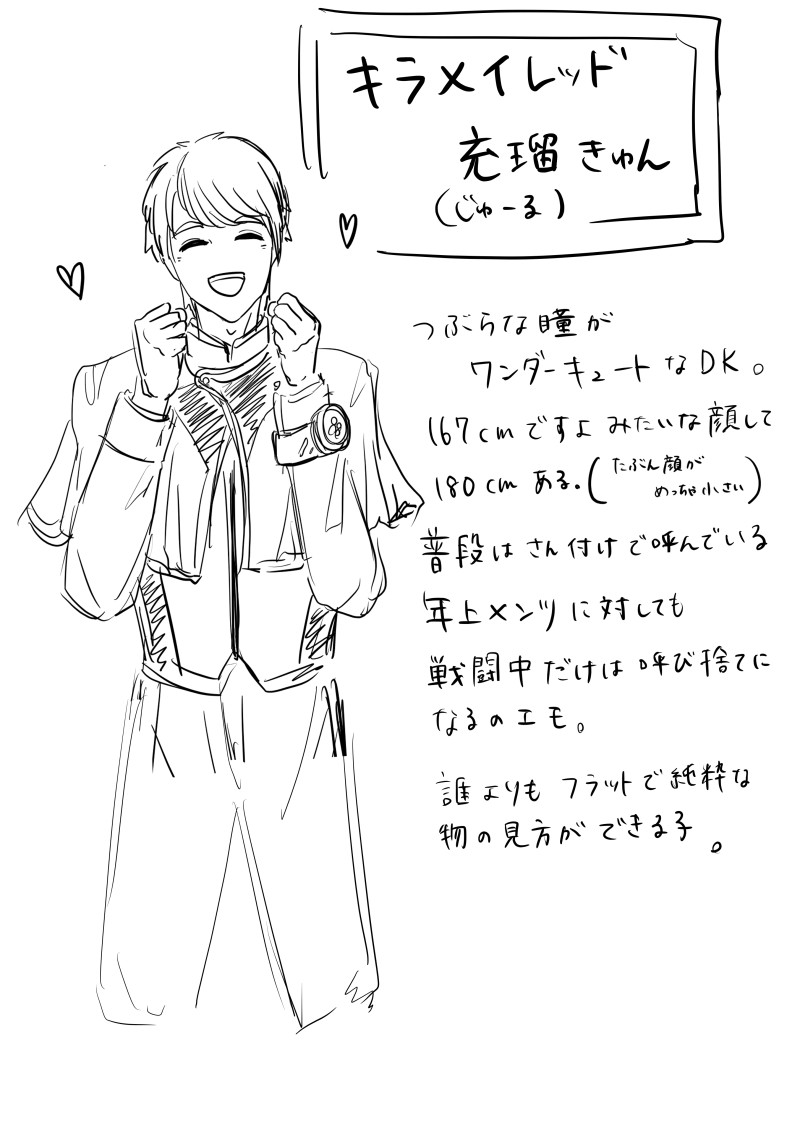 キラメイレッド
充瑠きゅん
(じゅーる)
つぶらな瞳が
ワンダーキュートなDK。
167cmですよみたいな顔して
180cmある。(たぶん顔が
めっちゃ小さい)
普段はさん付けで呼んでいる
年上メンツに対しても
戦闘中だけは呼び捨てに
なるのエモ。
誰よりもフラットで純粋な
物の見方ができる子。